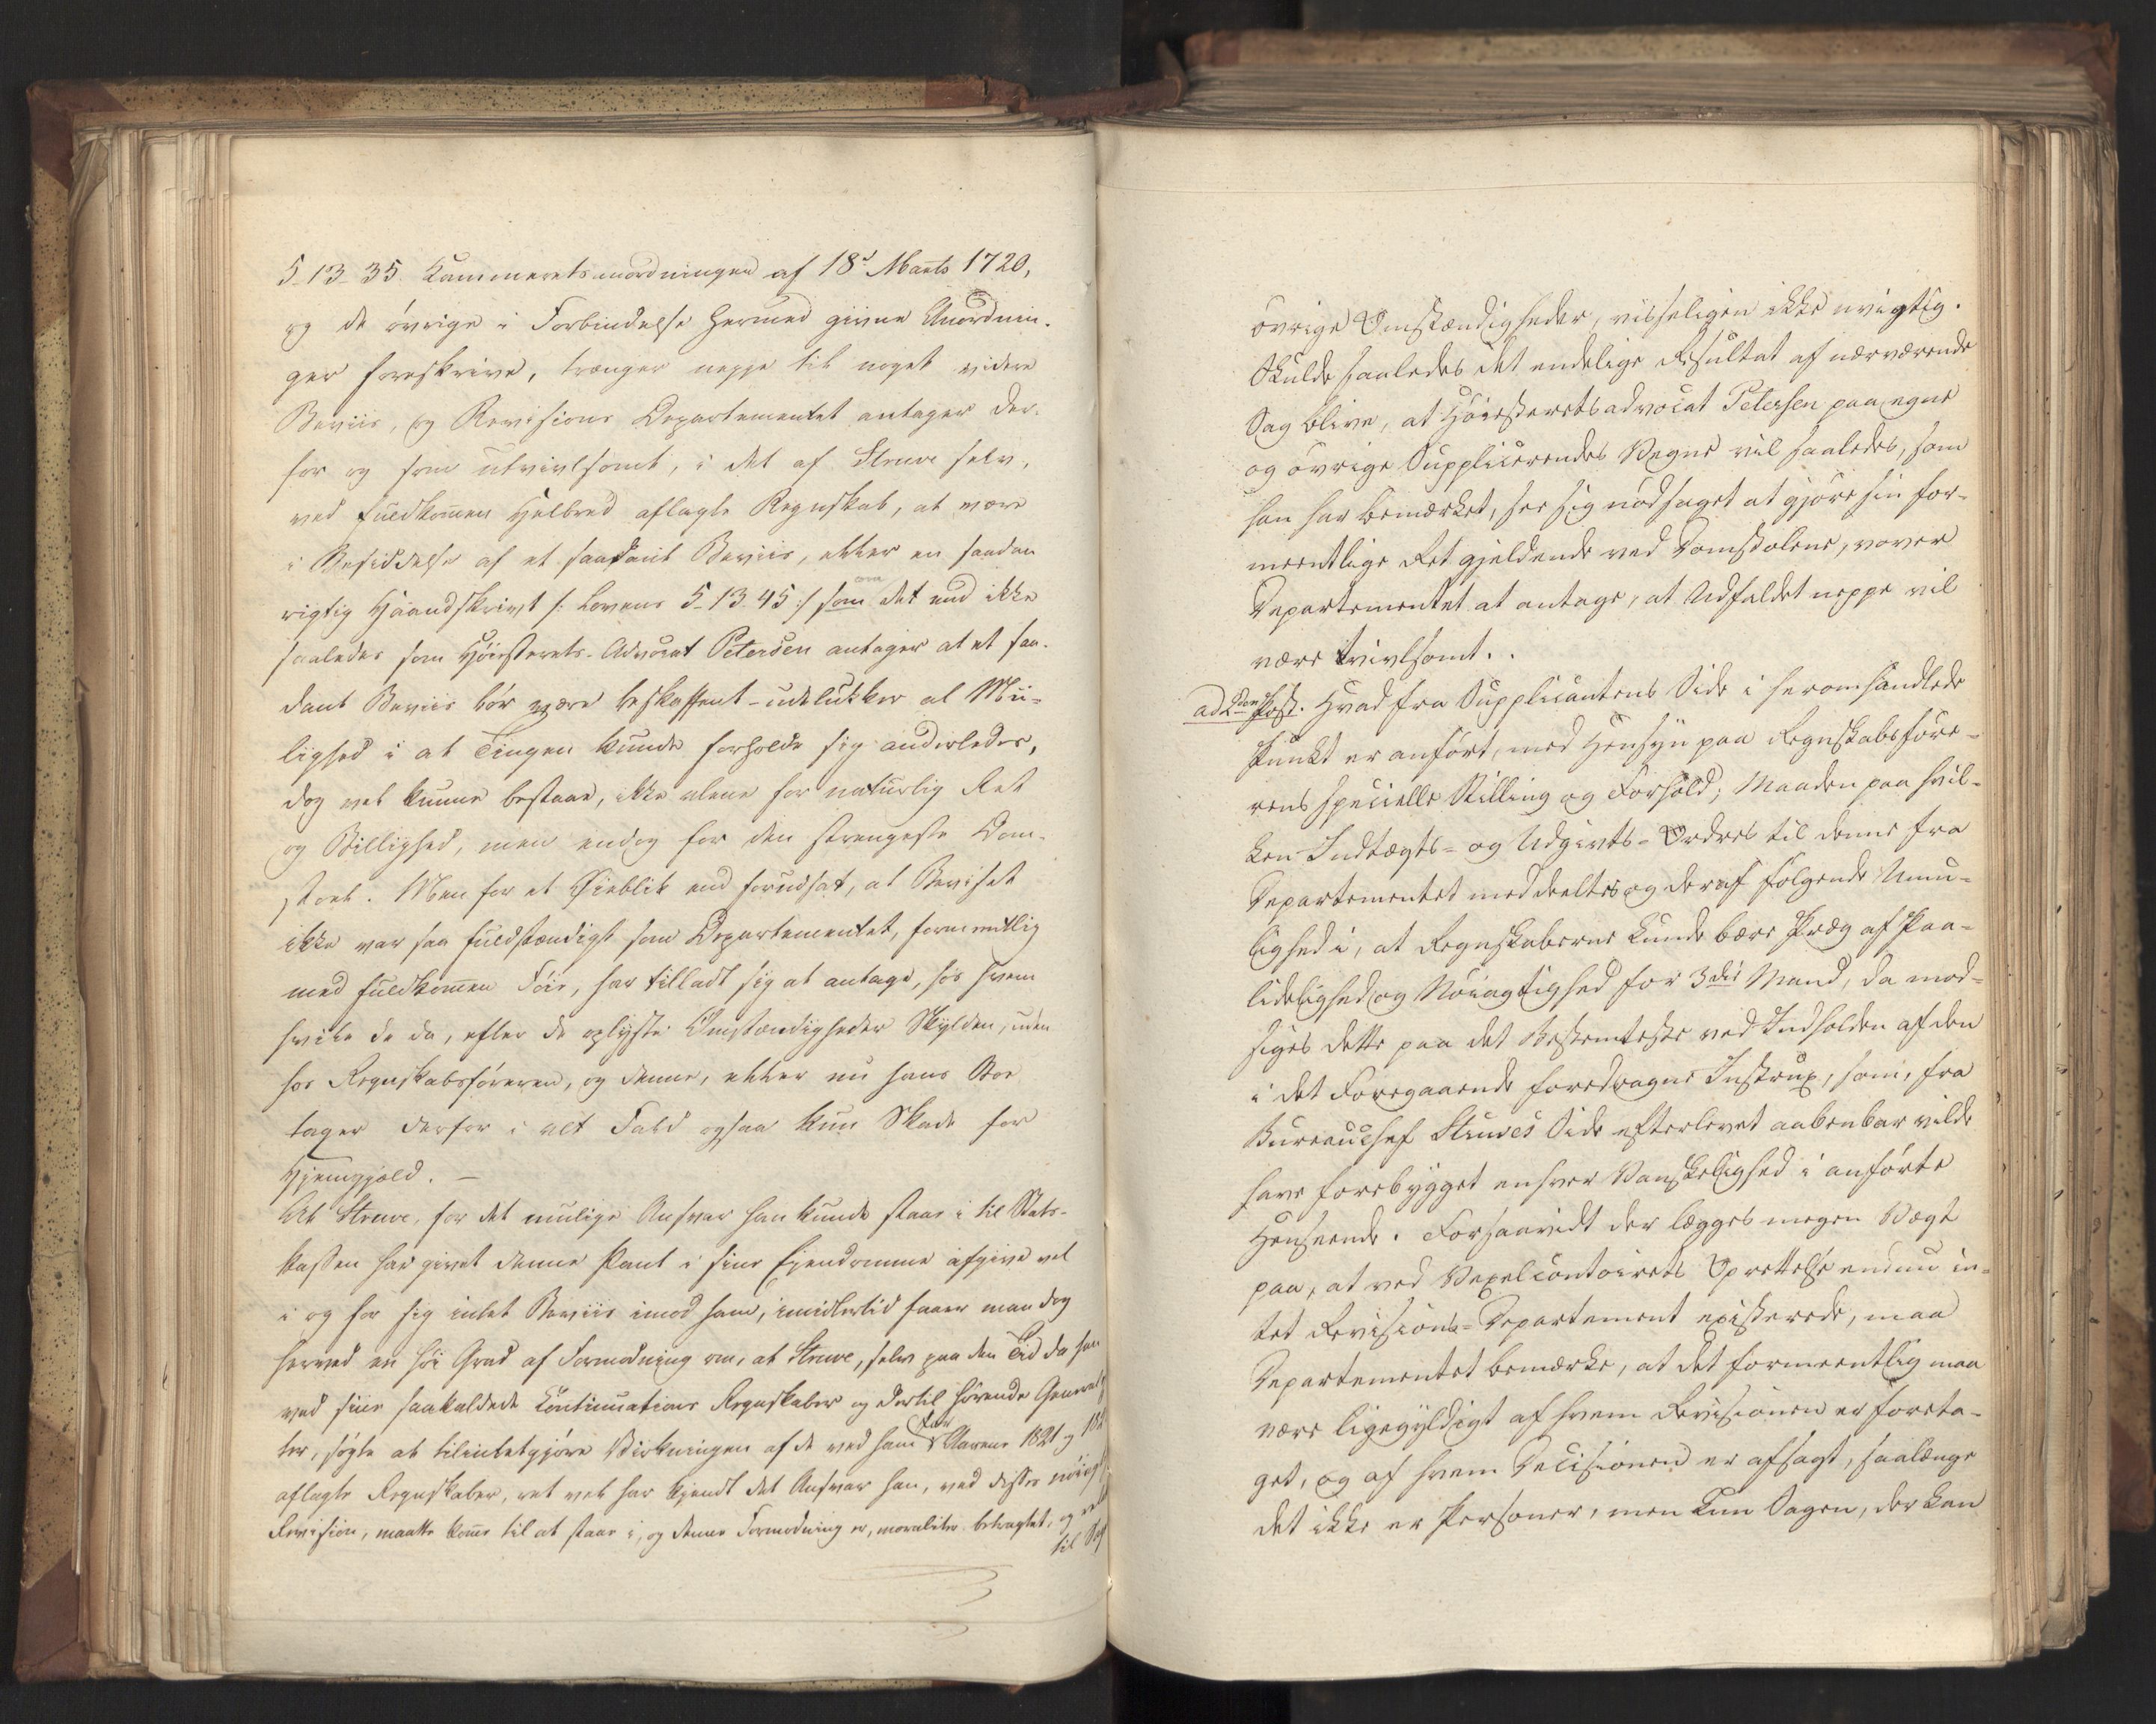 5-13-35. Kammeretsanordningen af 18d Marts 1720,
og de övrige i Forbindelse hermed givne Anordnin-
ger foreskrive, trænger neppe til noget videre
Beviis, og Revisions Departementet antager der-
for og som utvivlsomt, i det af Struve selv,
ved fuldkommen Helbred aflagte Regnskab, at være
i Besiddelse af et saadant Beviis, eller en saadan
rigtig Haandskrivt /: Lovens 5-13-45 :/ som det end ikke
saaledes som Höiesterets-Advocat Petersen antager at et saa-
dant Beviis bör være beskaffent - udelukker al Mu-
lighed i at Tingen kunde forholde sig anderledes,
dog vel kunne bestaae, ikke alene for naturlig Ret
og Billighed, men endog for den strengeste Dom-
stoel. Men for et Öieblik end forudsat, at Beviset
ikke var saa fuldstændigt som Departementet, formeentlig
med fuldkommen Föie, har tilladt sig at antage, hos hvem
hvile de da, efter de oplyste Omstændigheder Skylden, uden
hos Regnskabsföreren, og denne, eller nu hans Boe
tager derfor i alt Fald ogsaa kun Skade for
Hjemgjæld. —
At Struve, for det mulige Ansvar han kunde staae i til Stats-
kassen har givet denne Pant i sine Ejendomme afgive vel
i og for sig intet Beviis imod ham, imidlertid faaer man dog
herved en höi Grad af Formodning om, at Struve, selv paa den Tid da han
ved sine saakaldede Continuations Regnskaber og dertil hörende
ter, sögte at tilintetgjöre Virkningen af de ved ham for Aarene 1821 og
aflagte Regnskaber, ret vel har kjendt det Ansvar han, ved disses
Revision, maatte komme til at staae i, og denne Formodning er, moraliter betragtet, og
til
övrige Omstændigheder, visseligen ikke uvigtig.
Skulde saaledes det endelige Resultat af nærværende
Sag blive, at Höiesteretsadvocat Petersen paa egne
og övrige Supplicerendes Vegne vil saaledes, som
han har bemærket, see sig nödsaget at gjöre sin for-
meentlige Ret gjeldende ved Domstolene, vover
Departementet at antage, at Udfaldet neppe vil
være tvivlsomt.
ad 2den Post. Hvad fra Supplicantens Side i heromhandlede
Punkt er anfört, med Hensyn paa Regnskabsföre-
rens specielle Stilling og Forhold; Maaden paa hvil-
ken Indtægts- og Udgivts-Ordres til denne fra
Departementet meddeeltes og deraf fölgende Umu-
lighed i, at Regnskaberne kunde bære Præg af Paa-
lidelighed og Nöiagtighed for 3die Mand, da mod-
siges dette paa det Bestemteste ved Indholden af den
i det Foregaaende foredragne Instrux, som, fra
Bureauchef Struves Side efterlevet aabenbar vilde
have forebygget enhver Vanskelighed i anförte
Henseende. Forsaavidt der lægges megen Vægt
paa, at ved Vexelcontoirets Oprettelse endnu in-
tet Revisions-Departement existerede, maa
Departementet bemærke, at det formeentlig maa
være ligegyldigt af hvem Revisionen er foreta-
get, og af hvem Decisionen er afsagt, saalænge
det ikke er Personer, men kun Sagen, der kan